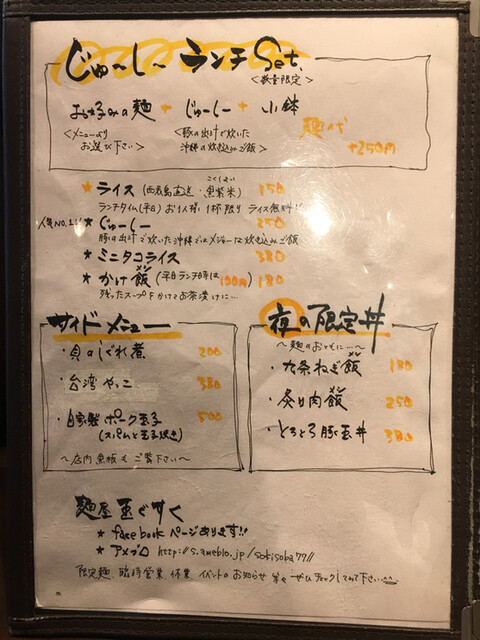 じゅ〜し〜 ランチ Set.
<数量限定>
お好みの麺 + じゅーしー + 小鉢
<メニューより お選び下さい>
<豚の出汁で炊いた 沖縄の炊き込みご飯>
麺の代 +250円
★ ライス (西表島直送・黒紫米) 150
ランチタイム(平日) お1人様 1杯限り ライス無料!
人気NO.1!! ★ じゅーしー 250
豚の出汁で炊いた沖縄ではメジャーな炊き込みご飯
★ ミニタコライス 380
★ かけ飯 (平日ランチ時は100円) 180
残ったスープをかけてお茶漬けに…
サイドメニュー
・貝のしぐれ煮 200
・台湾やっこ 380
・自家製 ポーク玉子 500
(スパムと玉子焼き)
〜店内黒板もご覧下さい〜
夜の限定丼
〜麺のおともに…〜
・九条ねぎ飯 180
・炙り肉飯 250
・とろとろ豚玉丼 380
麺屋 玉ぐすく
★ facebook ページあります!!
★ アメブロ http://s.ameblo.jp/sokisoba77//
限定麺、臨時営業、休業 イベントのお知らせ 等々 ぜひチェックしてみて下さい